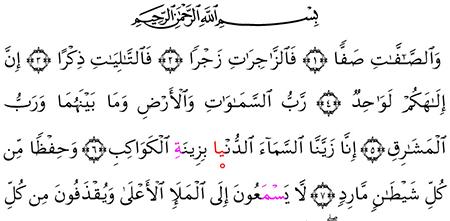 بِسْمِ اللَّهِ الرَّحْمَٰنِ الرَّحِيمِ
وَالصَّـٰٓفَّـٰتِ صَفًّا ﴿١﴾ فَالزَّٰجِرَٰتِ زَجْرًا ﴿٢﴾ فَالتَّـٰلِيَـٰتِ ذِكْرًا ﴿٣﴾ إِنَّ
إِلَـٰهَكُمْ لَوَٰحِدٌ ﴿٤﴾ رَّبُّ السَّمَـٰوَٰتِ وَالْأَرْضِ وَمَا بَيْنَهُمَا وَرَبُّ
الْمَشَـٰرِقِ ﴿٥﴾ إِنَّا زَيَّنَّا السَّمَآءَ الدُّنْيا بِزِينَةِ الْكَوَاكِبِ ﴿٦﴾ وَحِفْظًا مِّن
كُلِّ شَيْطَـٰنٍ مَّارِدٍ ﴿٧﴾ لَّا يَسْمَعُونَ إِلَى الْمَلَإِ الْأَعْلَىٰ وَيُقْذَفُونَ مِن كُلِّ